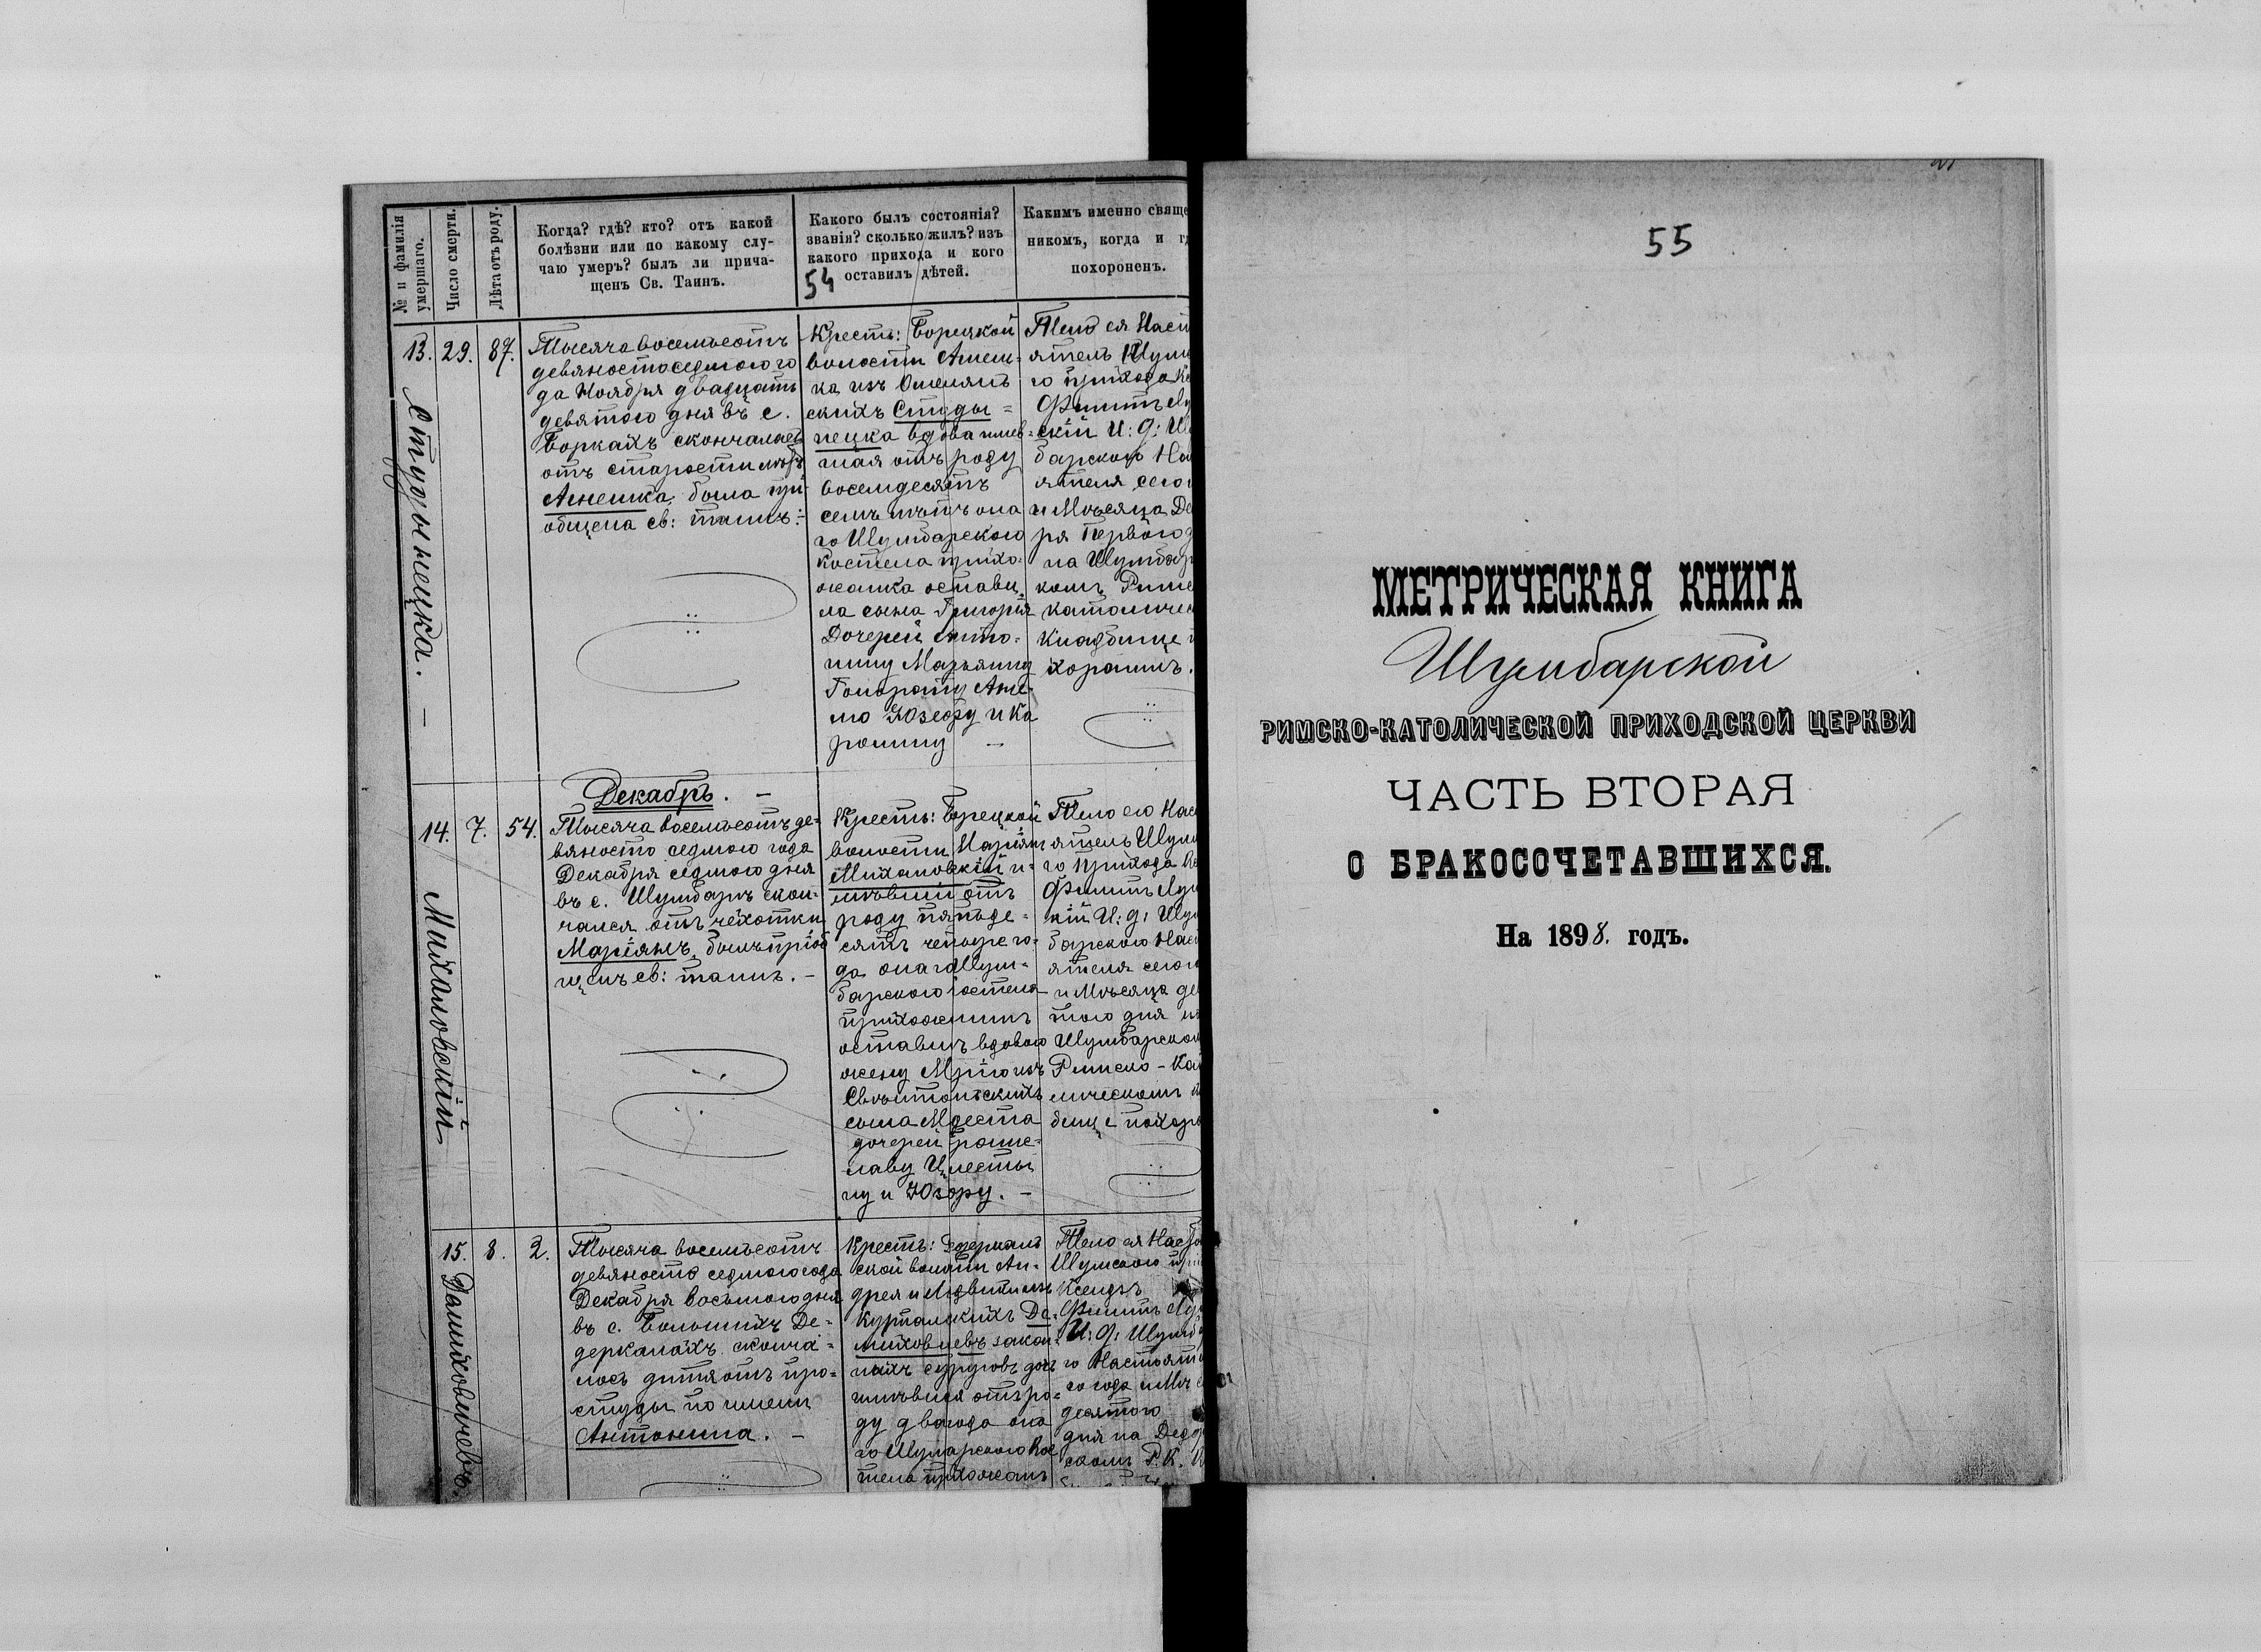 № и фамилія умершаго.
Число смерти.
Лѣта отъ роду.
Когда? гдѣ? кто? отъ какой
болѣзни или по какому слу-
чаю умеръ? былъ ли прича-
щенъ Св. Таинъ.
Какого былъ состоянія?
званія? сколько жилъ? изъ
какого прихода и кого
54 оставилъ дѣтей.
Какимъ именно свяще
никомъ, когда и г
похороненъ.
13. 29. 87.
Студынецка. –
Тысяча восемьсотъ
девяностоседмого го
да Ноября двадцать
девятого дня въ с.
Боркахъ скончалась
отъ старости
Агнешка была прі-
общена св: таинъ:
Крестъ: Борецкой
волости Агнеш-
ка изъ
скихъ Студы=
нецка вдова имев=
шая отъ роду
восемдесятъ
семъ лѣтъ она
го Шумбарского
костела прихо-
жанка остави
ла сына Григорія
Дочерей Анто=
нину Марьянну
Гонорату
лю Юзефу и Ка
ролину –
Тело ея Наст
ятель Шум
го прихода К
Филипъ
скій И: д: Шу
барского На
ятеля сего
и Мѣсяца Де
ря Первого д
на Шумбар
комъ Римс
католичес
Кладбище
хоронилъ.
Декабрь. –
14. 7. 54.
Михаловскій
Тысяча восемьсотъ де-
вяносто седмого года
Декабря седмого дня
въ с. Шумбаръ скон-
чался отъ чехотки
Маріянъ былъ пріоб
щенъ св: таинъ. –
Крестъ: Борецкой
волости Маріянъ
Михаловскій и-
мѣвшій отъ
роду пятьде-
сятъ четыре го-
да она го Шум-
барского костела
прихожанинъ
оставилъ вдовою
жену Марію изъ
скихъ
сына
дочерей Броне-
лаву Целесты
ну и Юзефу. –
Тело его Нас
ятель Шум
го прихода К
Филипъ
кій И: д: Шум
барского Нас
ятеля сего
и Мѣсяца де
того дня на
Шумбарском
Римско-Ка
лическомъ
бище похоро
15. 8. 2.
Далиховичевъ.
Тысяча восемьсотъ
девяносто седмого года
Декабря восьмого дня
въ с. Большихъ Де-
деркалахъ сконча-
лось дитя отъ про-
студы по имени
Антонина. –
Крестъ: Дедеркаль
ской волости Ан-
дрея и
законныхъ
имѣвшая отъ ро=
ду два года она
го Шумбарского Кос
тела прихожанъ
Тело ея Наст
Шумского при
Ксендзъ
Филипъ
И: д: Шумб
го Настояте
го года и Мѣс
десятого
дня на Деде
скомъ Р. К. К
55
МЕТРИЧЕСКАЯ КНИГА
Шумбарской
РИМСКО-КАТОЛИЧЕСКОЙ ПРИХОДСКОЙ ЦЕРКВИ
ЧАСТЬ ВТОРАЯ
О БРАКОСОЧЕТАВШИХСЯ.
На 1898. годъ.